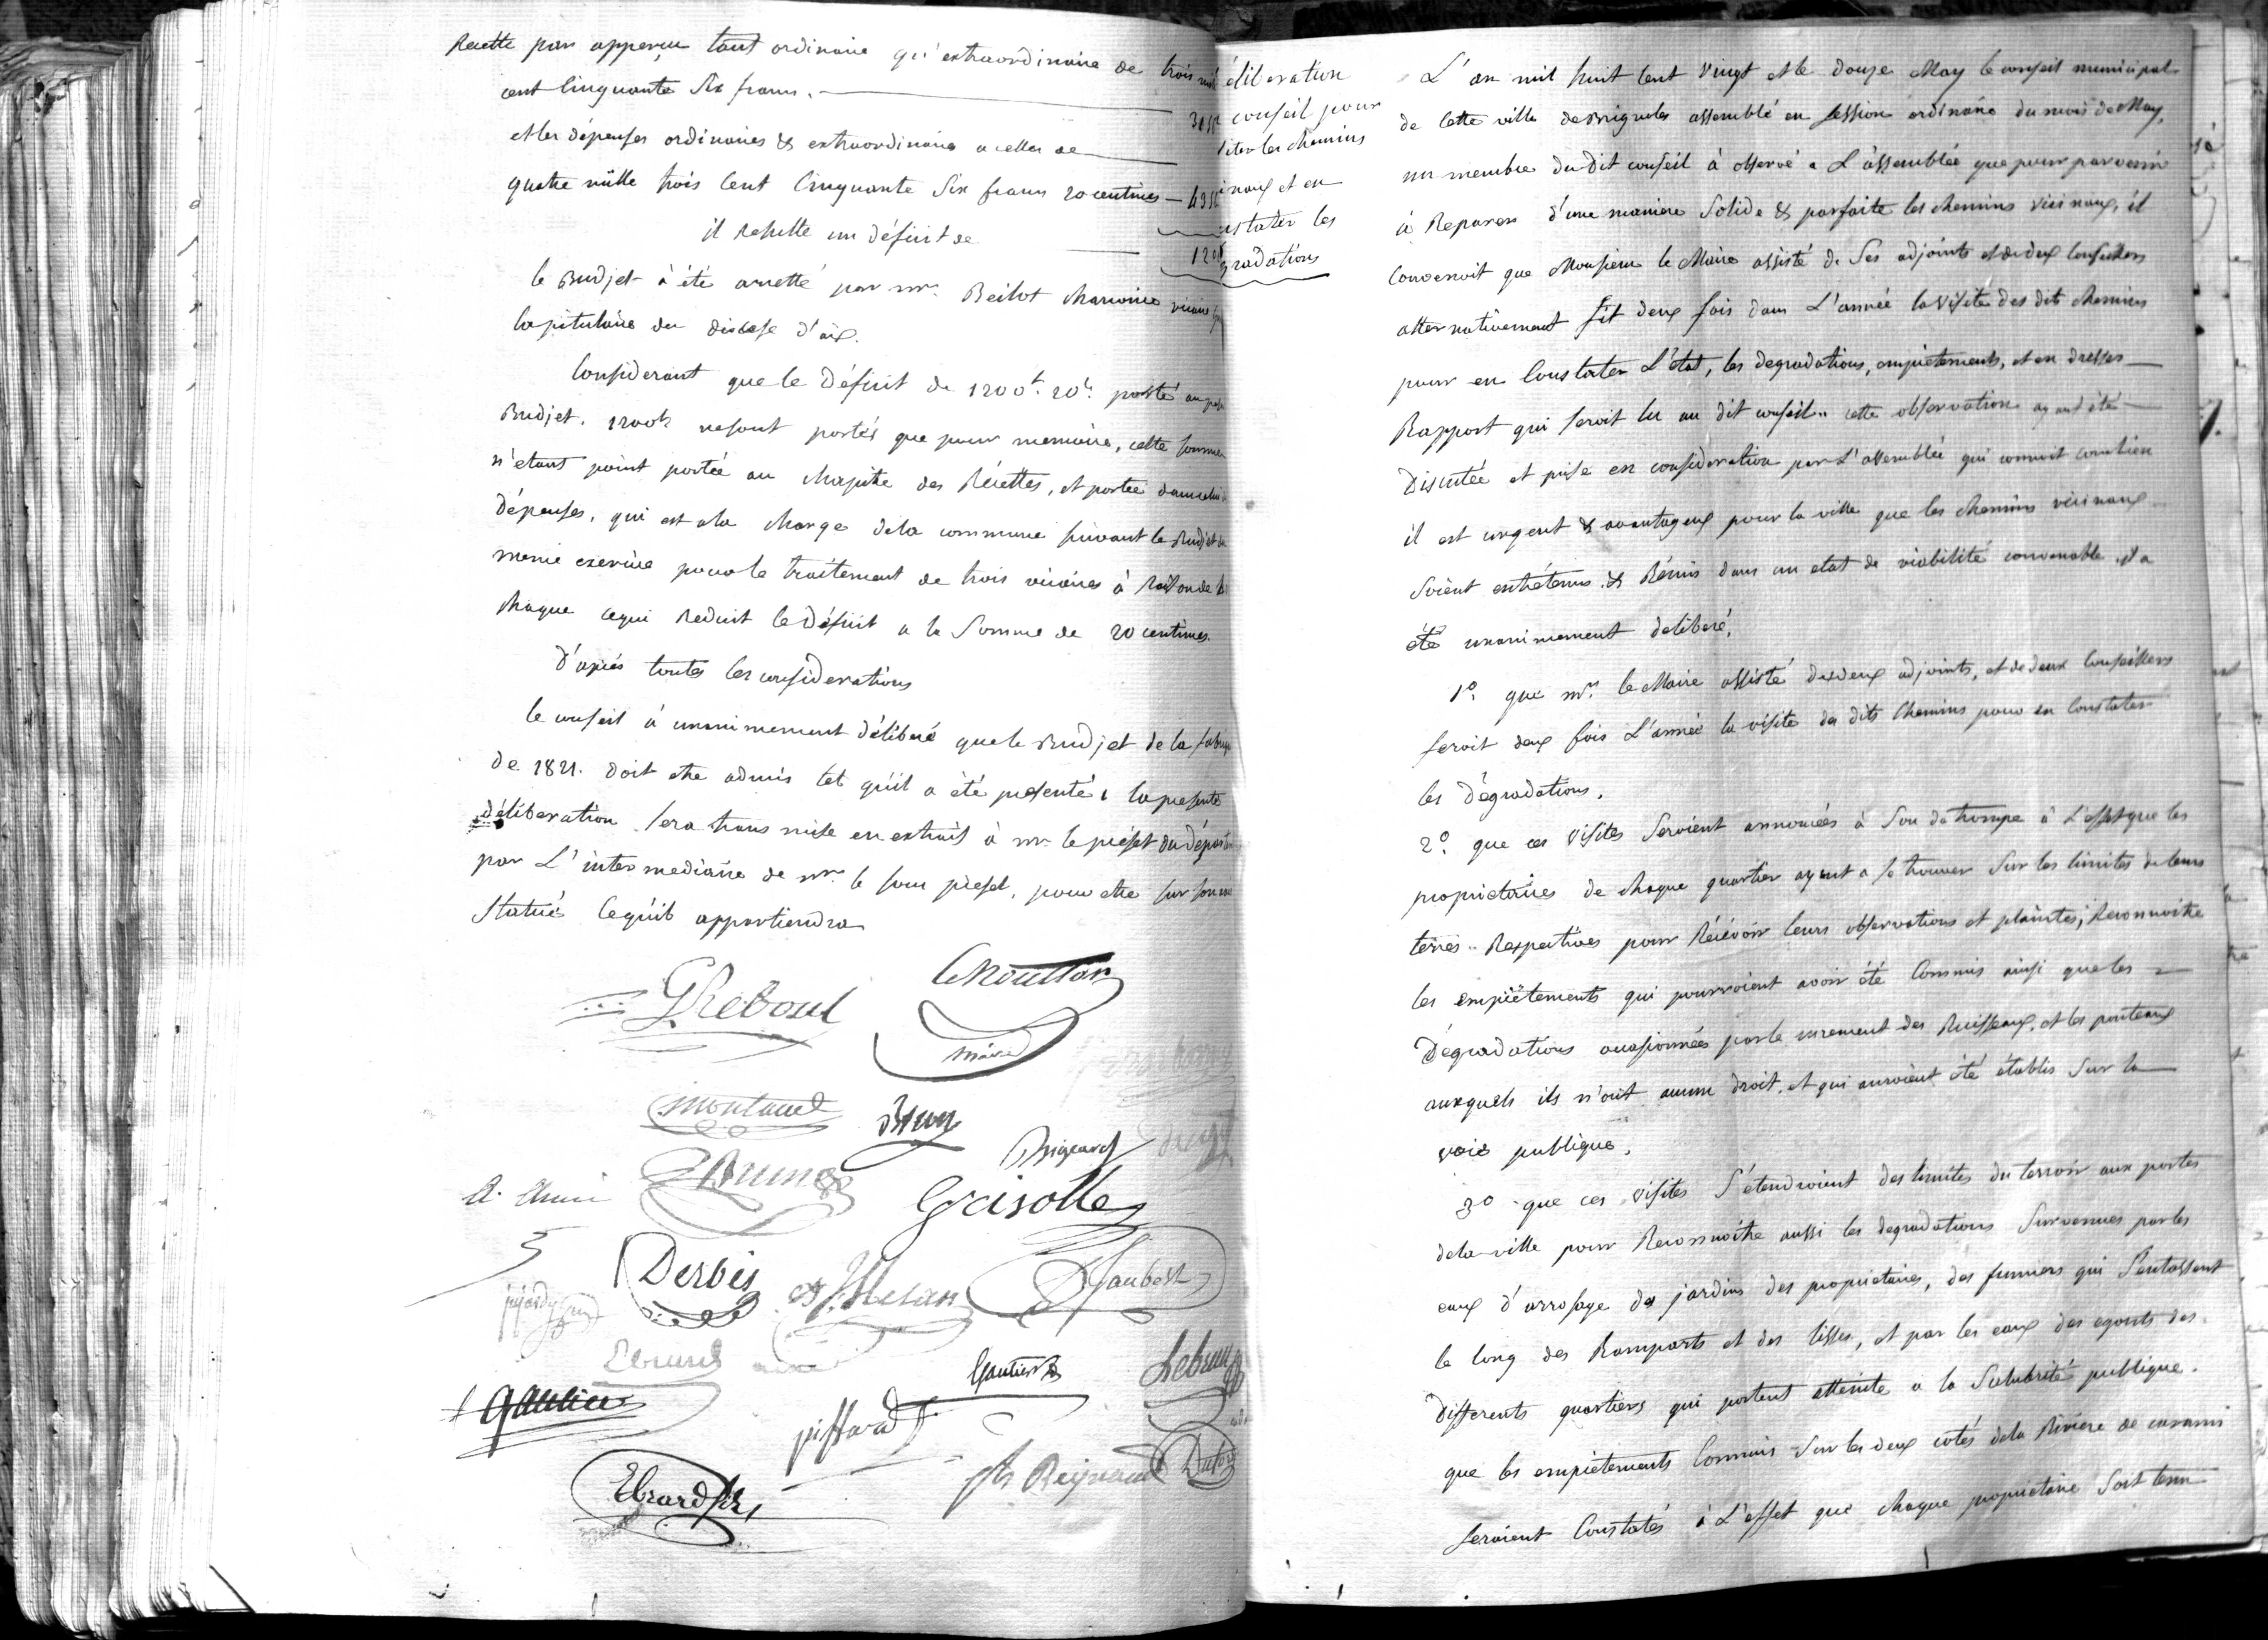 Recette par apperçu tant ordinaire qu'extraordinaire de trois mil
cent Cinquante Six francs.
et les dépenses ordinaires & extraordinaires a celles de
quatre mille trois Cent Cinquante Six francs 20 centimes
il Resulte un déficit de
le Budjet à été arretté par mr. Beilot chanoine vicaire
Capitulaire du diocese d'aix.
Considerant que le Déficit de 1200f. 20c. porté au
Budjet. 1200f. ne sont portés que pour memoire, cette somme
n'etant point portée au chapitre des Récettes, et portée dans celui
dépenses, qui est a la charge de la commune suivant le Budjet
meme exercice pour le traitement de trois vicaires à Raison de
chaque ce qui Reduit le Déficit a la Somme de 20 centimes.
D'après toutes les considerations
le conseil à unanimement délibéré que le Budjet de la fabrique
de 1821. doit etre admis tel qu'il a été presenté, la presente
déliberation sera transmise en extrait à mr. le préfet du dépar
par L'intermediaire de mr. le sous préfet, pour etre sur son
Statué Ce qu'il appartiendra
GReboul
maire
Montaud
Brun
Brigeard
Brun
Grisolle
Derbès
Jaubert
Gautier
Lebrun
Gautier
piffard
Reynaud
Ebrard fils
éliberation
conseil pour
siter les chemins
inaux et en
nstater les
gradations
L'an mil huit Cent Vingt et le douze May le conseil municipal
de Cette ville de Brignoles assemblé en session ordinaire du mois de May,
un membre du dit conseil à observé a L'assemblée que pour parvenir
à Reparer d'une maniere Solide & parfaite les chemins vicinaux, il
Convenoit que Monsieur le Maire assisté de Ses adjoints et de deux Conseillers
alternativement fit deux fois dans L'année la Visite des dits chemins
pour en Constater L'état, les degradations, empietements, et en dresser
Rapport qui seroit lu au dit conseil.. cette observation ayant été
Discutée et prise en consideration par L'assemblée qui connoit combien
il est urgent & avantageux pour la ville que les chemins vicinaux
Soient entretenus & Rémis dans un etat de viabilité convenable, il a
été unanimement deliberé,
1o. que mr. le Maire assisté des deux adjoints, et de deux Conseillers
feroit deux fois L'année la visite des dits Chemins pour en Constater
les Dégradations.
2o. que ces Visites Seroient annoncées à Son de trompe à L'effet que les
proprietaires de chaque quartier ayent a se trouver Sur les limites de leurs
terres Respectives pour Récévoir leurs observations et plaintes, Reconnoitre
les empiètements qui pourroient avoir été Commis ainsi que les
Dégradations occasionnées par le curement des Ruisseaux, et les ponteaux
auxquels ils n'ont aucun droit, et qui auroient été établis Sur la
voie publique.
3o que ces visites S'étendroient des limites du terroir aux portes
de la ville pour Reconnoitre aussi les degradations Survenues par les
eaux d'arrosage des jardins des proprietaires, des fumiers qui S'entassent
le long des Ramparts et des lisses, et par les eaux des egouts des
Differents quartiers qui portent atteinte a la Salubrité publique.
que les empietements Commis Sur les deux cotés de la Riviere de carami
seroient Constatés à L'effet que chaque proprietaire Soit tenu